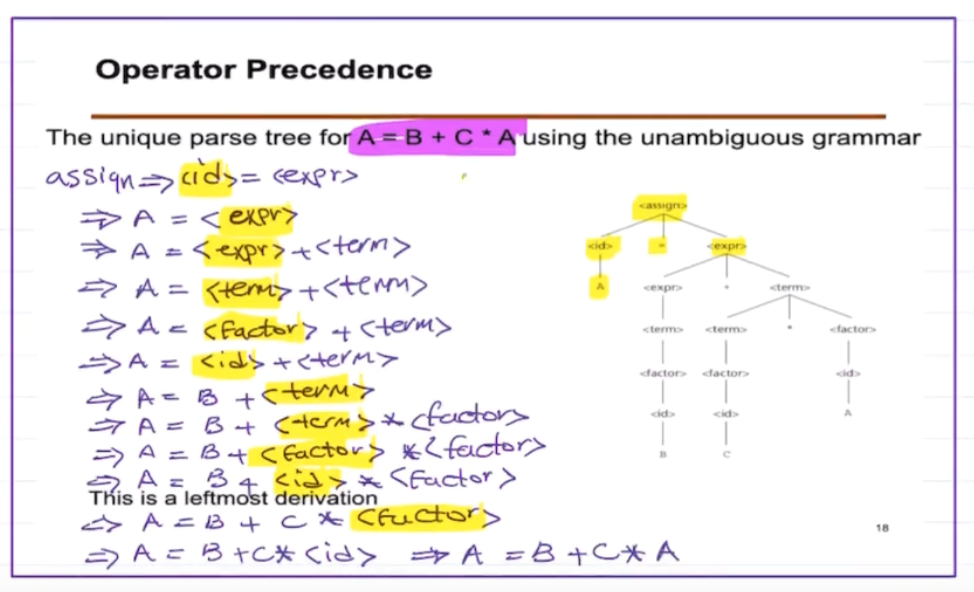 Operator Precedence
The unique parse tree for A = B + C * A using the unambiguous grammar
assign => <id> = <expr>
=> A = <expr>
=> A = <expr> + <term>
=> A = <term> + <term>
=> A = <factor> + <term>
=> A = <id> + <term>
=> A = B + <term>
=> A = B + <term> * <factor>
=> A = B + <factor> * <factor>
=> A = B + <id> * <factor>
This is a leftmost derivation
=> A = B + C * <factor>
=> A = B + C * <id> => A = B + C * A
<assign>
<id> = <expr>
A <expr> + <term>
<term> <term> * <factor>
<factor> <factor> <id>
<id> <id> A
B C
18